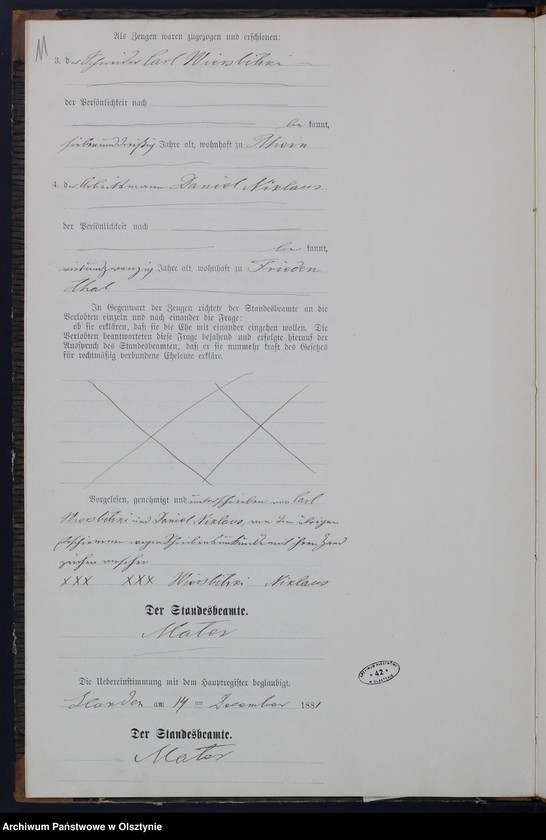 11
Als Zeugen waren zugezogen und erschienen:
3. der Schneider Carl Wiersbitzki
der Persönlichkeit nach
be kannt,
siebenunddreißig Jahre alt, wohnhaft zu Rhein
4. der Arbeitsmann Daniel Niklaus
der Persönlichkeit nach
be kannt,
vierundzwanzig Jahre alt, wohnhaft zu Frieden
thal
In Gegenwart der Zeugen richtete der Standesbeamte an die
Verlobten einzeln und nach einander die Frage:
ob sie erklären, daß sie die Ehe mit einander eingehen wollen. Die
Verlobten beantworteten diese Frage bejahend und erfolgte hierauf der
Ausspruch des Standesbeamten, daß er sie nunmehr kraft des Gesetzes
für rechtmäßig verbundene Eheleute erkläre.
Vorgelesen, genehmigt und unterschrieben von Carl
Wiersbitzki und Daniel Niklaus, von den übrigen
Erschienenen wegen Schreibensunkunde mit ihren Hand
zeichen versehen
XXX XXX Wiersbitzki Niklaus
Der Standesbeamte.
Mator
Die Uebereinstimmung mit dem Hauptregister beglaubigt.
am 14 = December 1881
Der Standesbeamte.
Mator
42
Archiwum Państwowe w Olsztynie